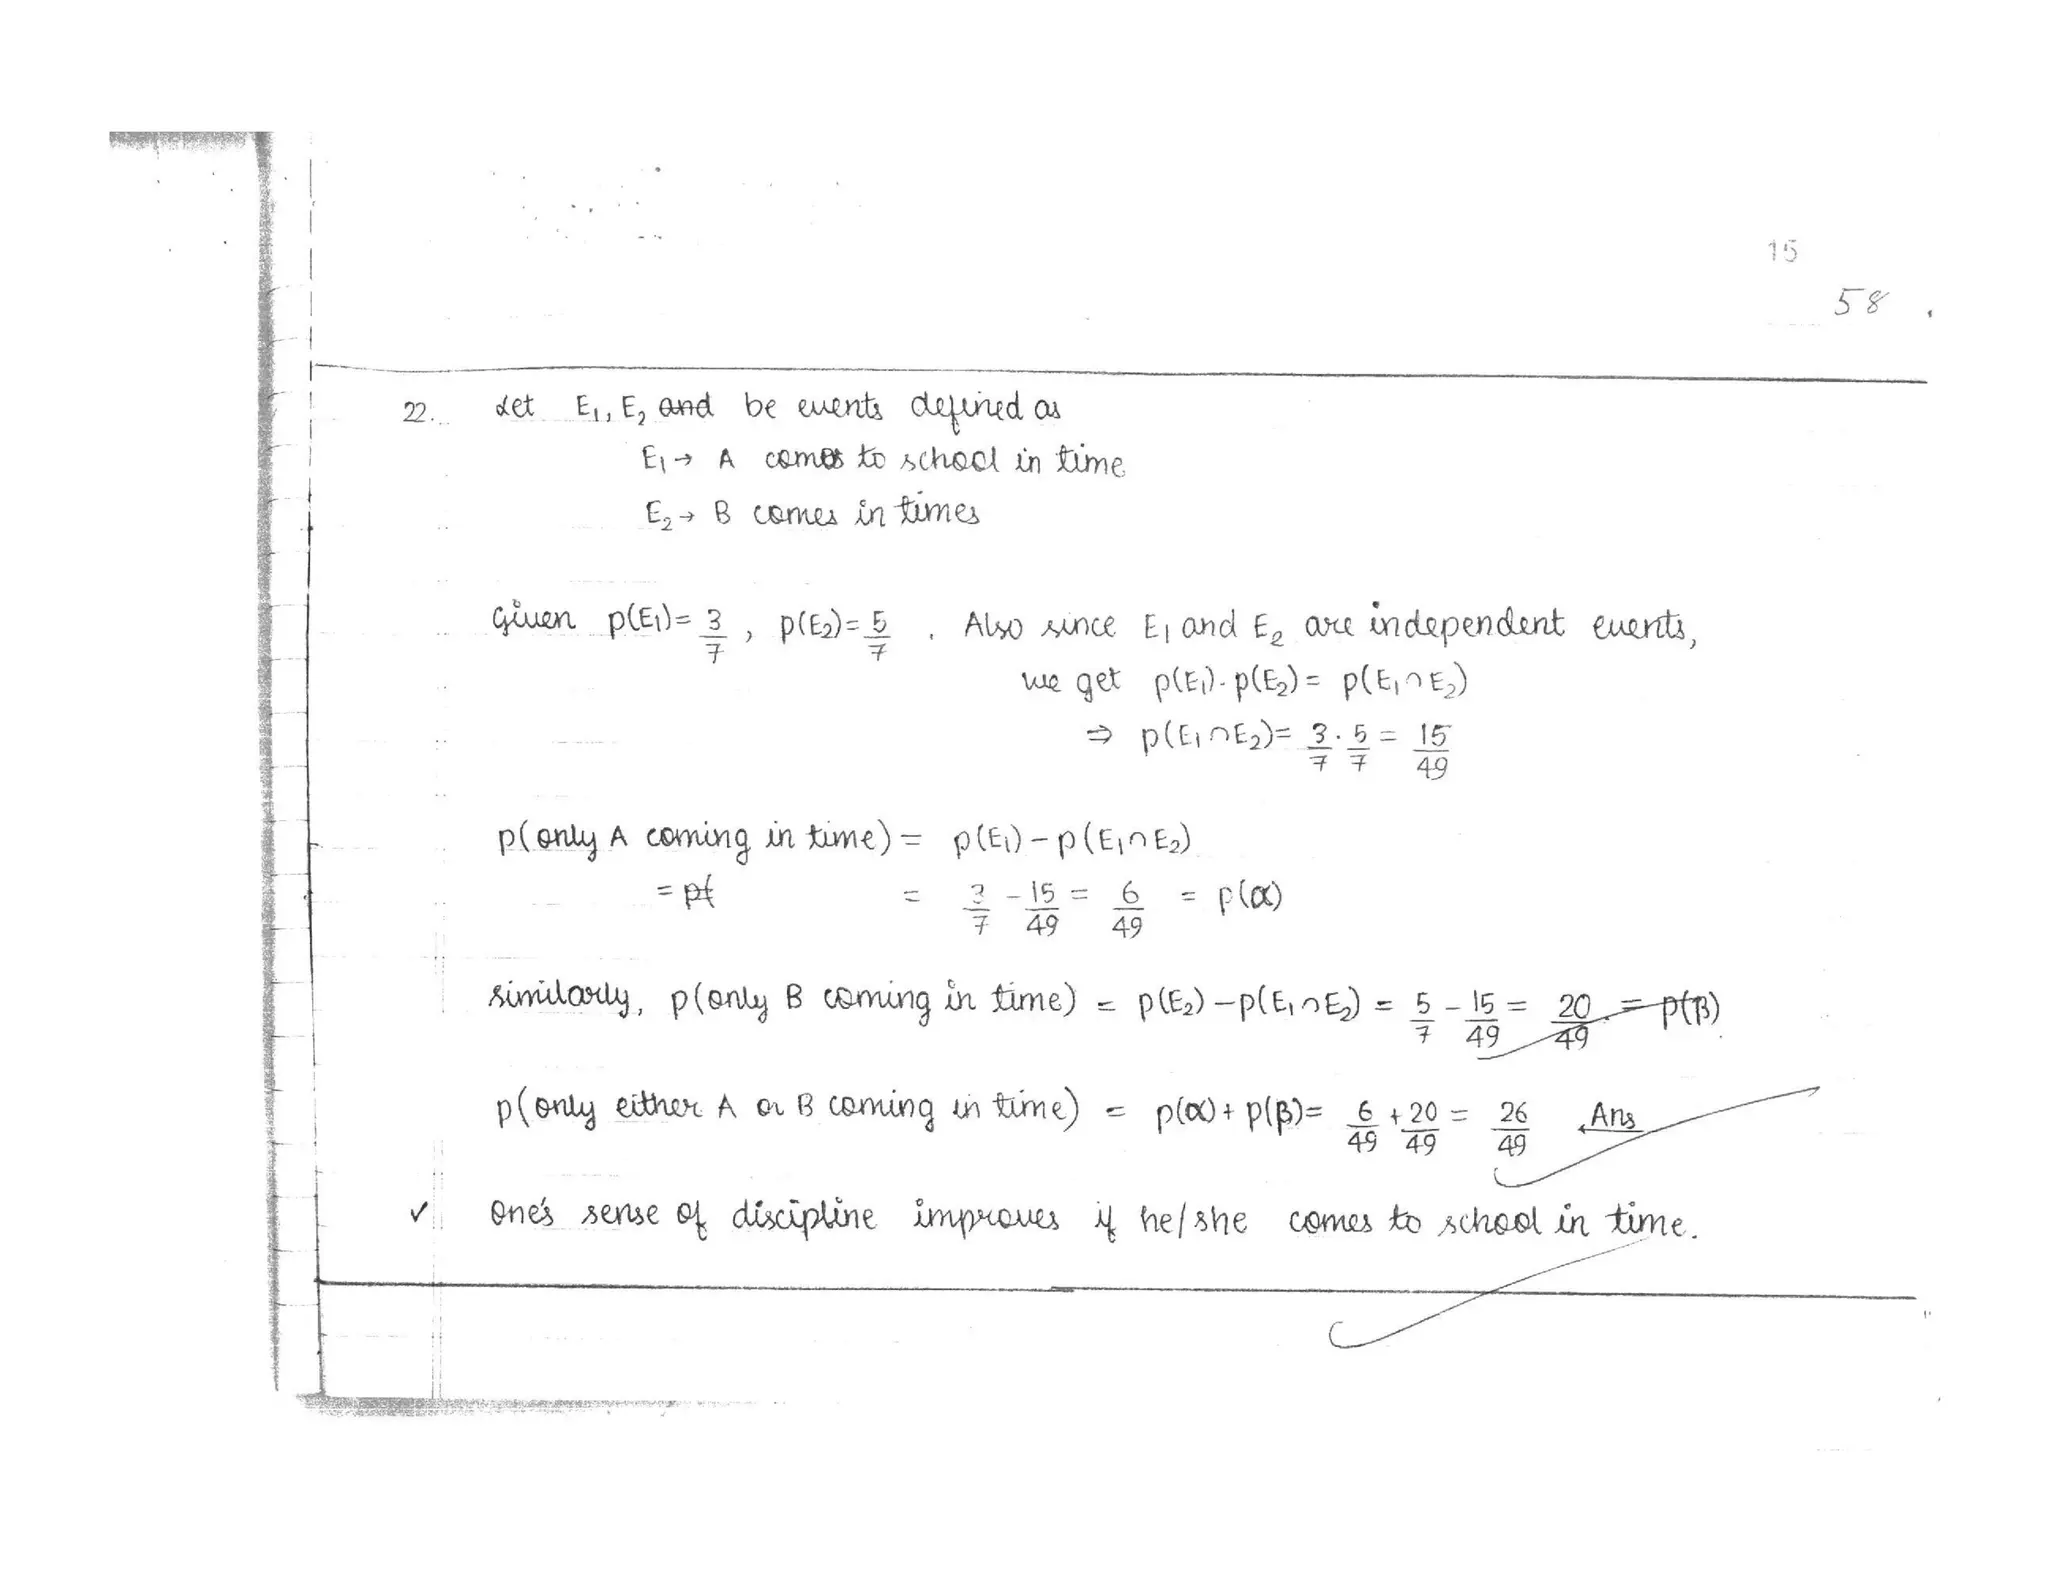 15
58
22. Let E₁, E₂ and be events defined as
E₁ → A comes to school in time
E₂ → B comes in times
Given p(E₁)= 3/7 , p(E₂)= 5/7 . Also since E₁ and E₂ are independent events,
we get p(E₁)·p(E₂)= p(E₁∩E₂)
⇒ p(E₁∩E₂)= 3/7 · 5/7 = 15/49
p(only A coming in time) = p(E₁) – p(E₁∩E₂)
= p( = 3/7 – 15/49 = 6/49 = p(α)
Similarly, p(only B coming in time) = p(E₂) – p(E₁∩E₂) = 5/7 – 15/49 = 20/49 . = p(β)
p(only either A or B coming in time) = p(α) + p(β)= 6/49 + 20/49 = 26/49 Ans
✓ One's sense of discipline improves if he/she comes to school in time.